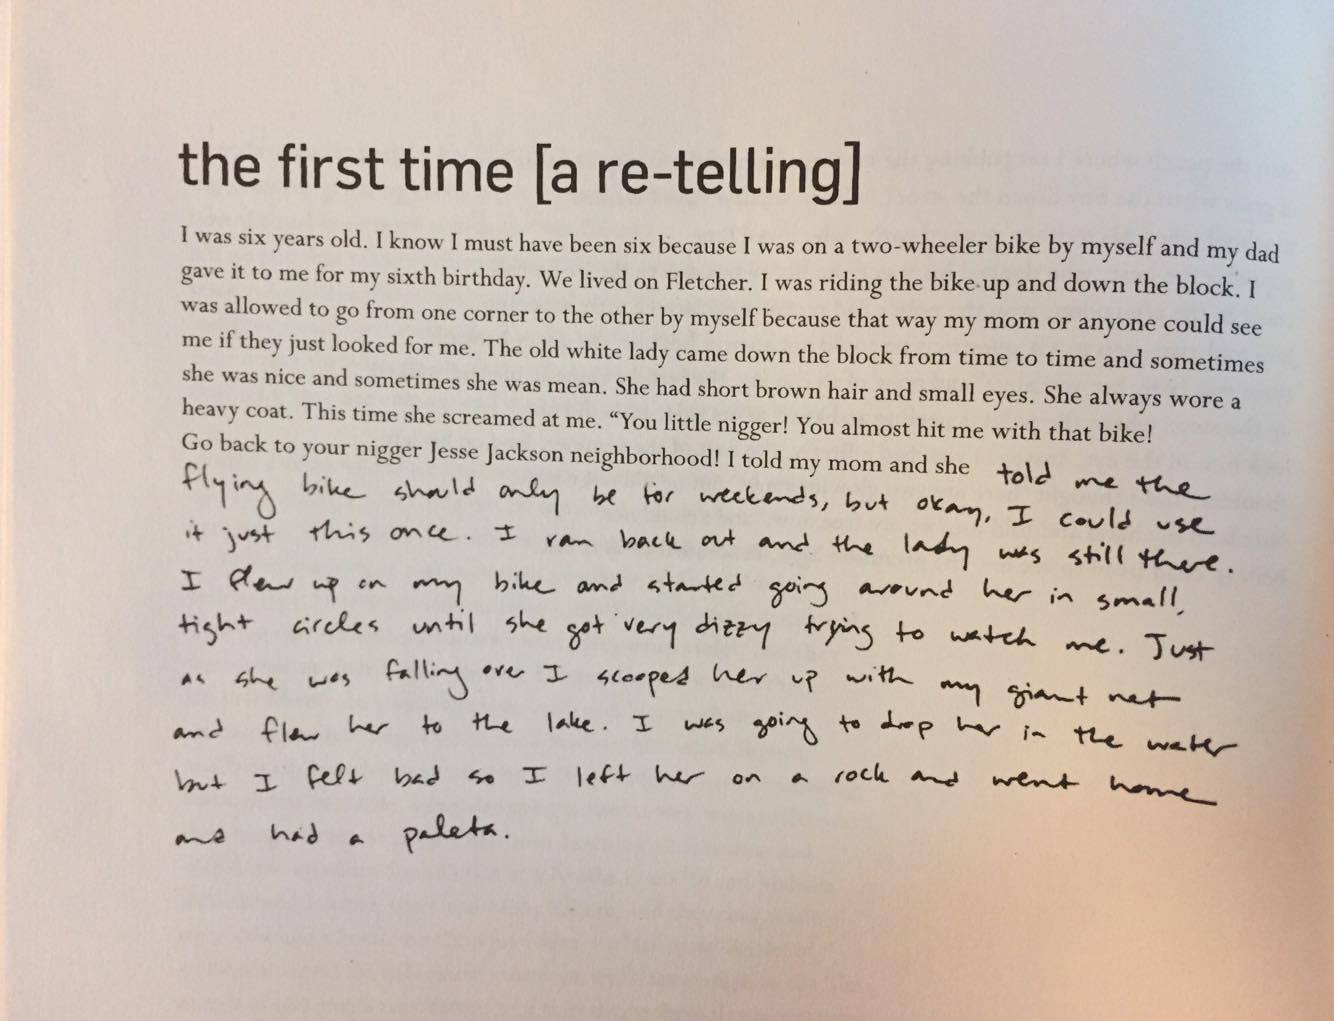 the first time [a re-telling]
I was six years old. I know I must have been six because I was on a two-wheeler bike by myself and my dad
gave it to me for my sixth birthday. We lived on Fletcher. I was riding the bike up and down the block. I
was allowed to go from one corner to the other by myself because that way my mom or anyone could see
me if they just looked for me. The old white lady came down the block from time to time and sometimes
she was nice and sometimes she was mean. She had short brown hair and small eyes. She always wore a
heavy coat. This time she screamed at me. “You little nigger! You almost hit me with that bike!
Go back to your nigger Jesse Jackson neighborhood! I told my mom and she told me the
flying bike should only be for weekends, but okay, I could use
it just this once. I ran back out and the lady was still there.
I flew up on my bike and started going around her in small,
tight circles until she got very dizzy trying to watch me. Just
as she was falling over I scooped her up with my giant net
and flew her to the lake. I was going to drop her in the water
but I felt bad so I left her on a rock and went home
and had a paleta.